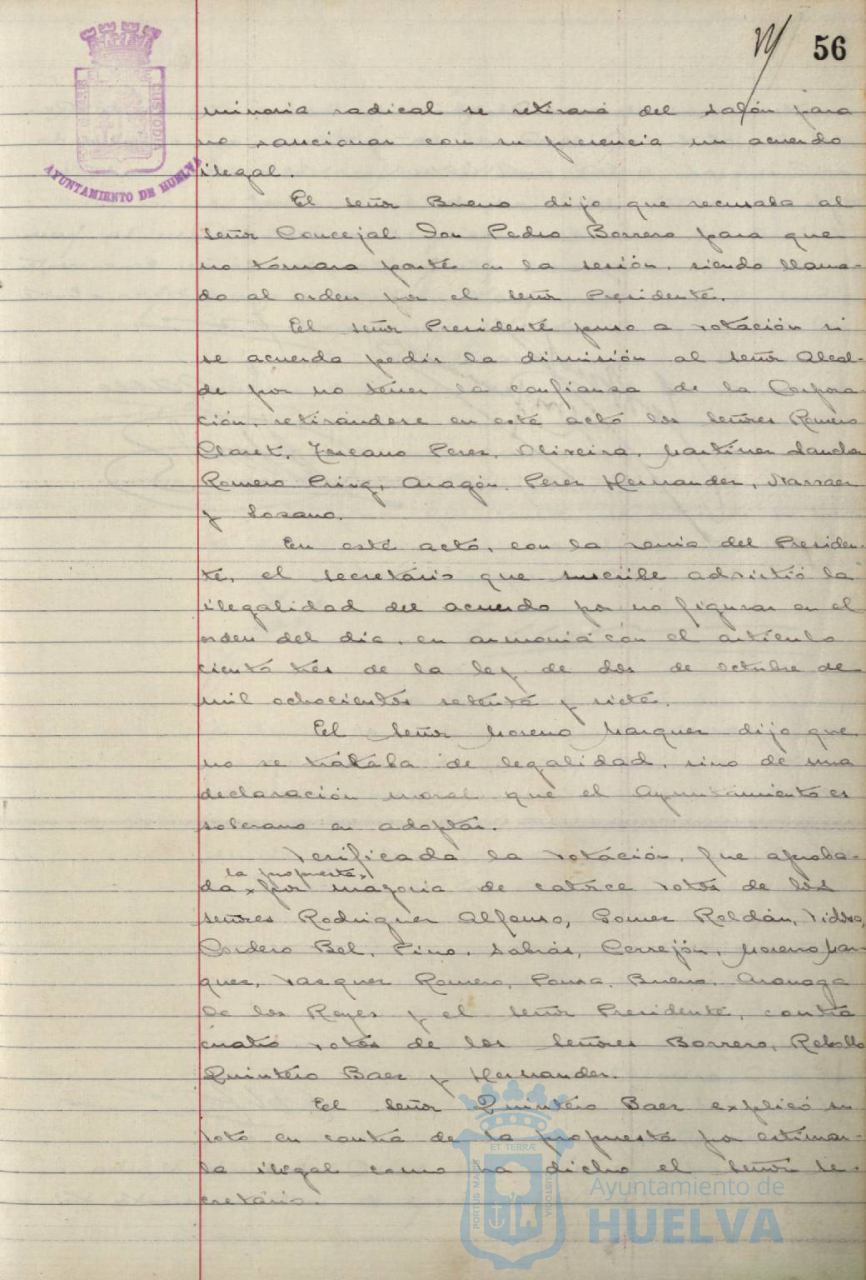 56
AYUNTAMIENTO DE HUELVA
minoria radical se retirará del salón para
no sancionar con su presencia un acuerdo
ilegal.
El señor Bueno dijo que recusaba al
señor Concejal Don Pedro Borrero para que
no tomara parte en la sesión, siendo llama-
do al orden por el señor Presidente.
El señor Presidente puso a votación si
se acuerda pedir la dimisión al señor Alcal-
de por no tener la confianza de la Corpora-
ción, retirándose en este acto los señores Romero
Claret, Perez, Oliveira, Martinez
Romero Aragón, Perez Hernandez, Narvaez
y Lozano.
En este acto, con la venia del Presiden-
te, el secretario que suscribe advirtió la
ilegalidad del acuerdo por no figurar en el
orden del dia, en armonia con el articulo
ciento tres de la ley de dos de octubre de
mil ochocientos setenta y siete.
El señor Moreno Marquez dijo que
no se trataba de legalidad, sino de una
declaración moral que el Ayuntamiento es
soberano en adoptar.
Verificada la votación, fue aproba-
la propuesta
da por mayoria de catorce votos de los
señores Rodriguez Alfonso, Gomez Roldán,
Cordero Bel, Pino, Sabrás, Cerrejón, Moreno Mar-
quez, Vazquez Romero, Ponce, Bueno,
de los Reyes y el señor Presidente, contra
cuatro votos de los señores Borrero, Rebollo
Quintero Baez y Hernandez.
El señor Quintero Baez explicó su
voto en contra de la propuesta por estimar-
la ilegal como ha dicho el señor se-
cretario.
PORTUS MARIS
ET TERRÆ
CUSTODIA
Ayuntamiento de
HUELVA